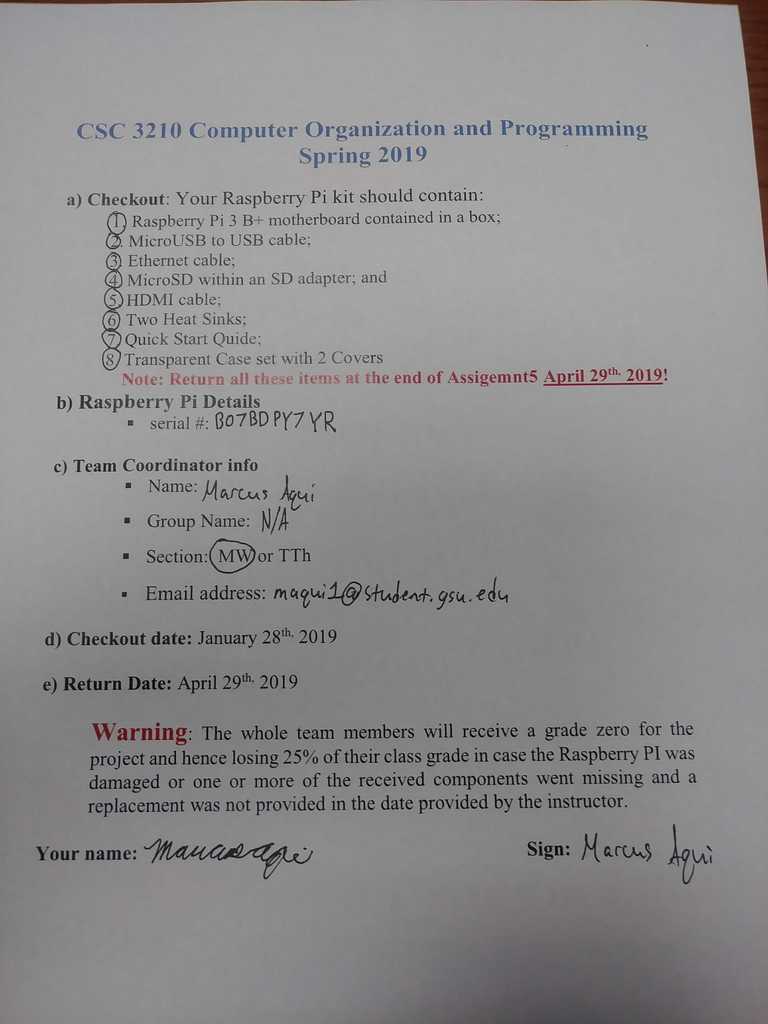 CSC 3210 Computer Organization and Programming
Spring 2019
a) Checkout: Your Raspberry Pi kit should contain:
1. Raspberry Pi 3 B+ motherboard contained in a box;
2. MicroUSB to USB cable;
3. Ethernet cable;
4. MicroSD within an SD adapter; and
5. HDMI cable;
6. Two Heat Sinks;
7. Quick Start Quide;
8. Transparent Case set with 2 Covers
Note: Return all these items at the end of Assigemnt5 April 29th, 2019!
b) Raspberry Pi Details
▪ serial #: B07BDPY7YR
c) Team Coordinator info
▪ Name: Marcus Aqui
▪ Group Name: N/A
▪ Section: MW or TTh
▪ Email address: maqui1@student.gsu.edu
d) Checkout date: January 28th, 2019
e) Return Date: April 29th, 2019
Warning: The whole team members will receive a grade zero for the
project and hence losing 25% of their class grade in case the Raspberry PI was
damaged or one or more of the received components went missing and a
replacement was not provided in the date provided by the instructor.
Your name: Marcus Aqui Sign: Marcus Aqui